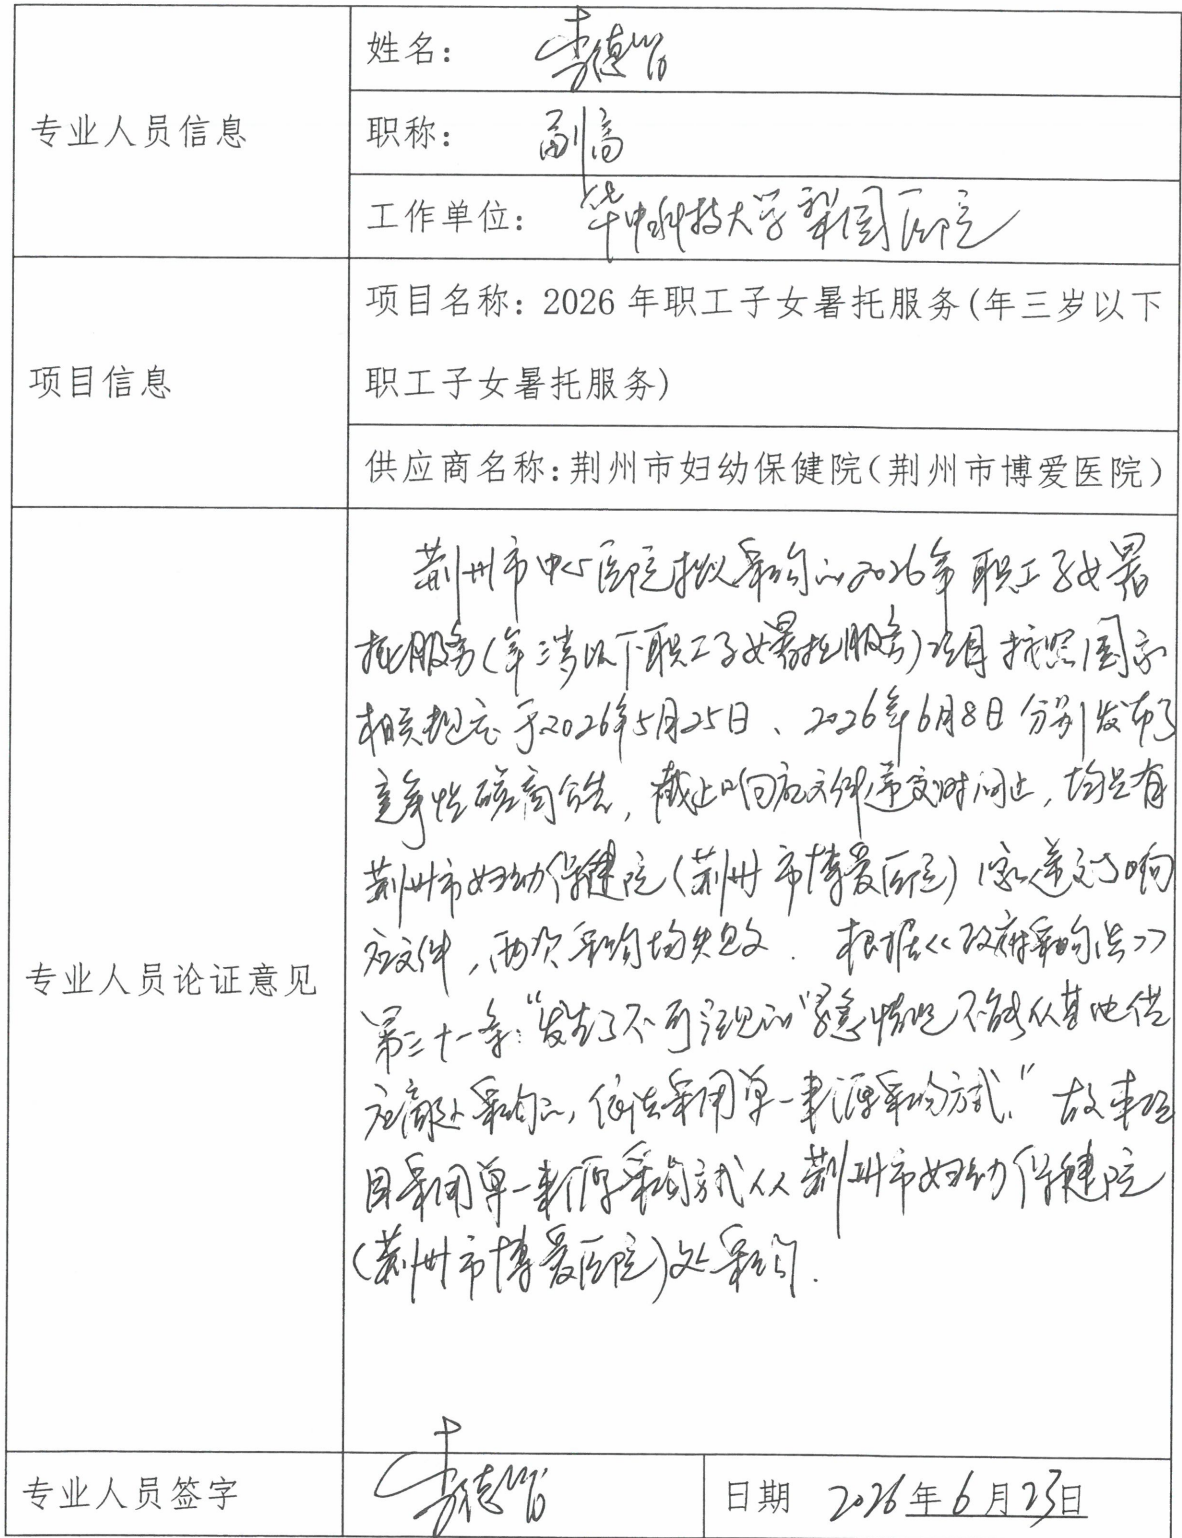 专业人员信息
姓名: 李德智
职称: 副高
工作单位: 华中科技大学梨园医院
项目信息
项目名称: 2026 年职工子女暑托服务(年三岁以下
职工子女暑托服务)
供应商名称:荆州市妇幼保健院(荆州市博爱医院)
专业人员论证意见
荆州市中心医院拟采购的2026年职工子女暑
托服务(年三岁以下职工子女暑托服务)项目按照国家
相关规定于2026年5月25日、2026年6月8日分别发布了
竞争性磋商公告,截止响应文件递交时间止,均只有
荆州市妇幼保健院(荆州市博爱医院)1家递交了响
应文件,两次采购均失败.根据《政府采购法》
第三十一条:“发生了不可预见的“紧急情况不能从其他供
应商处采购的,依法采用单一来源采购方式.”故本项
目采用单一来源采购方式从荆州市妇幼保健院
(荆州市博爱医院)处采购.
专业人员签字 李德智
日期 2026年6月23日